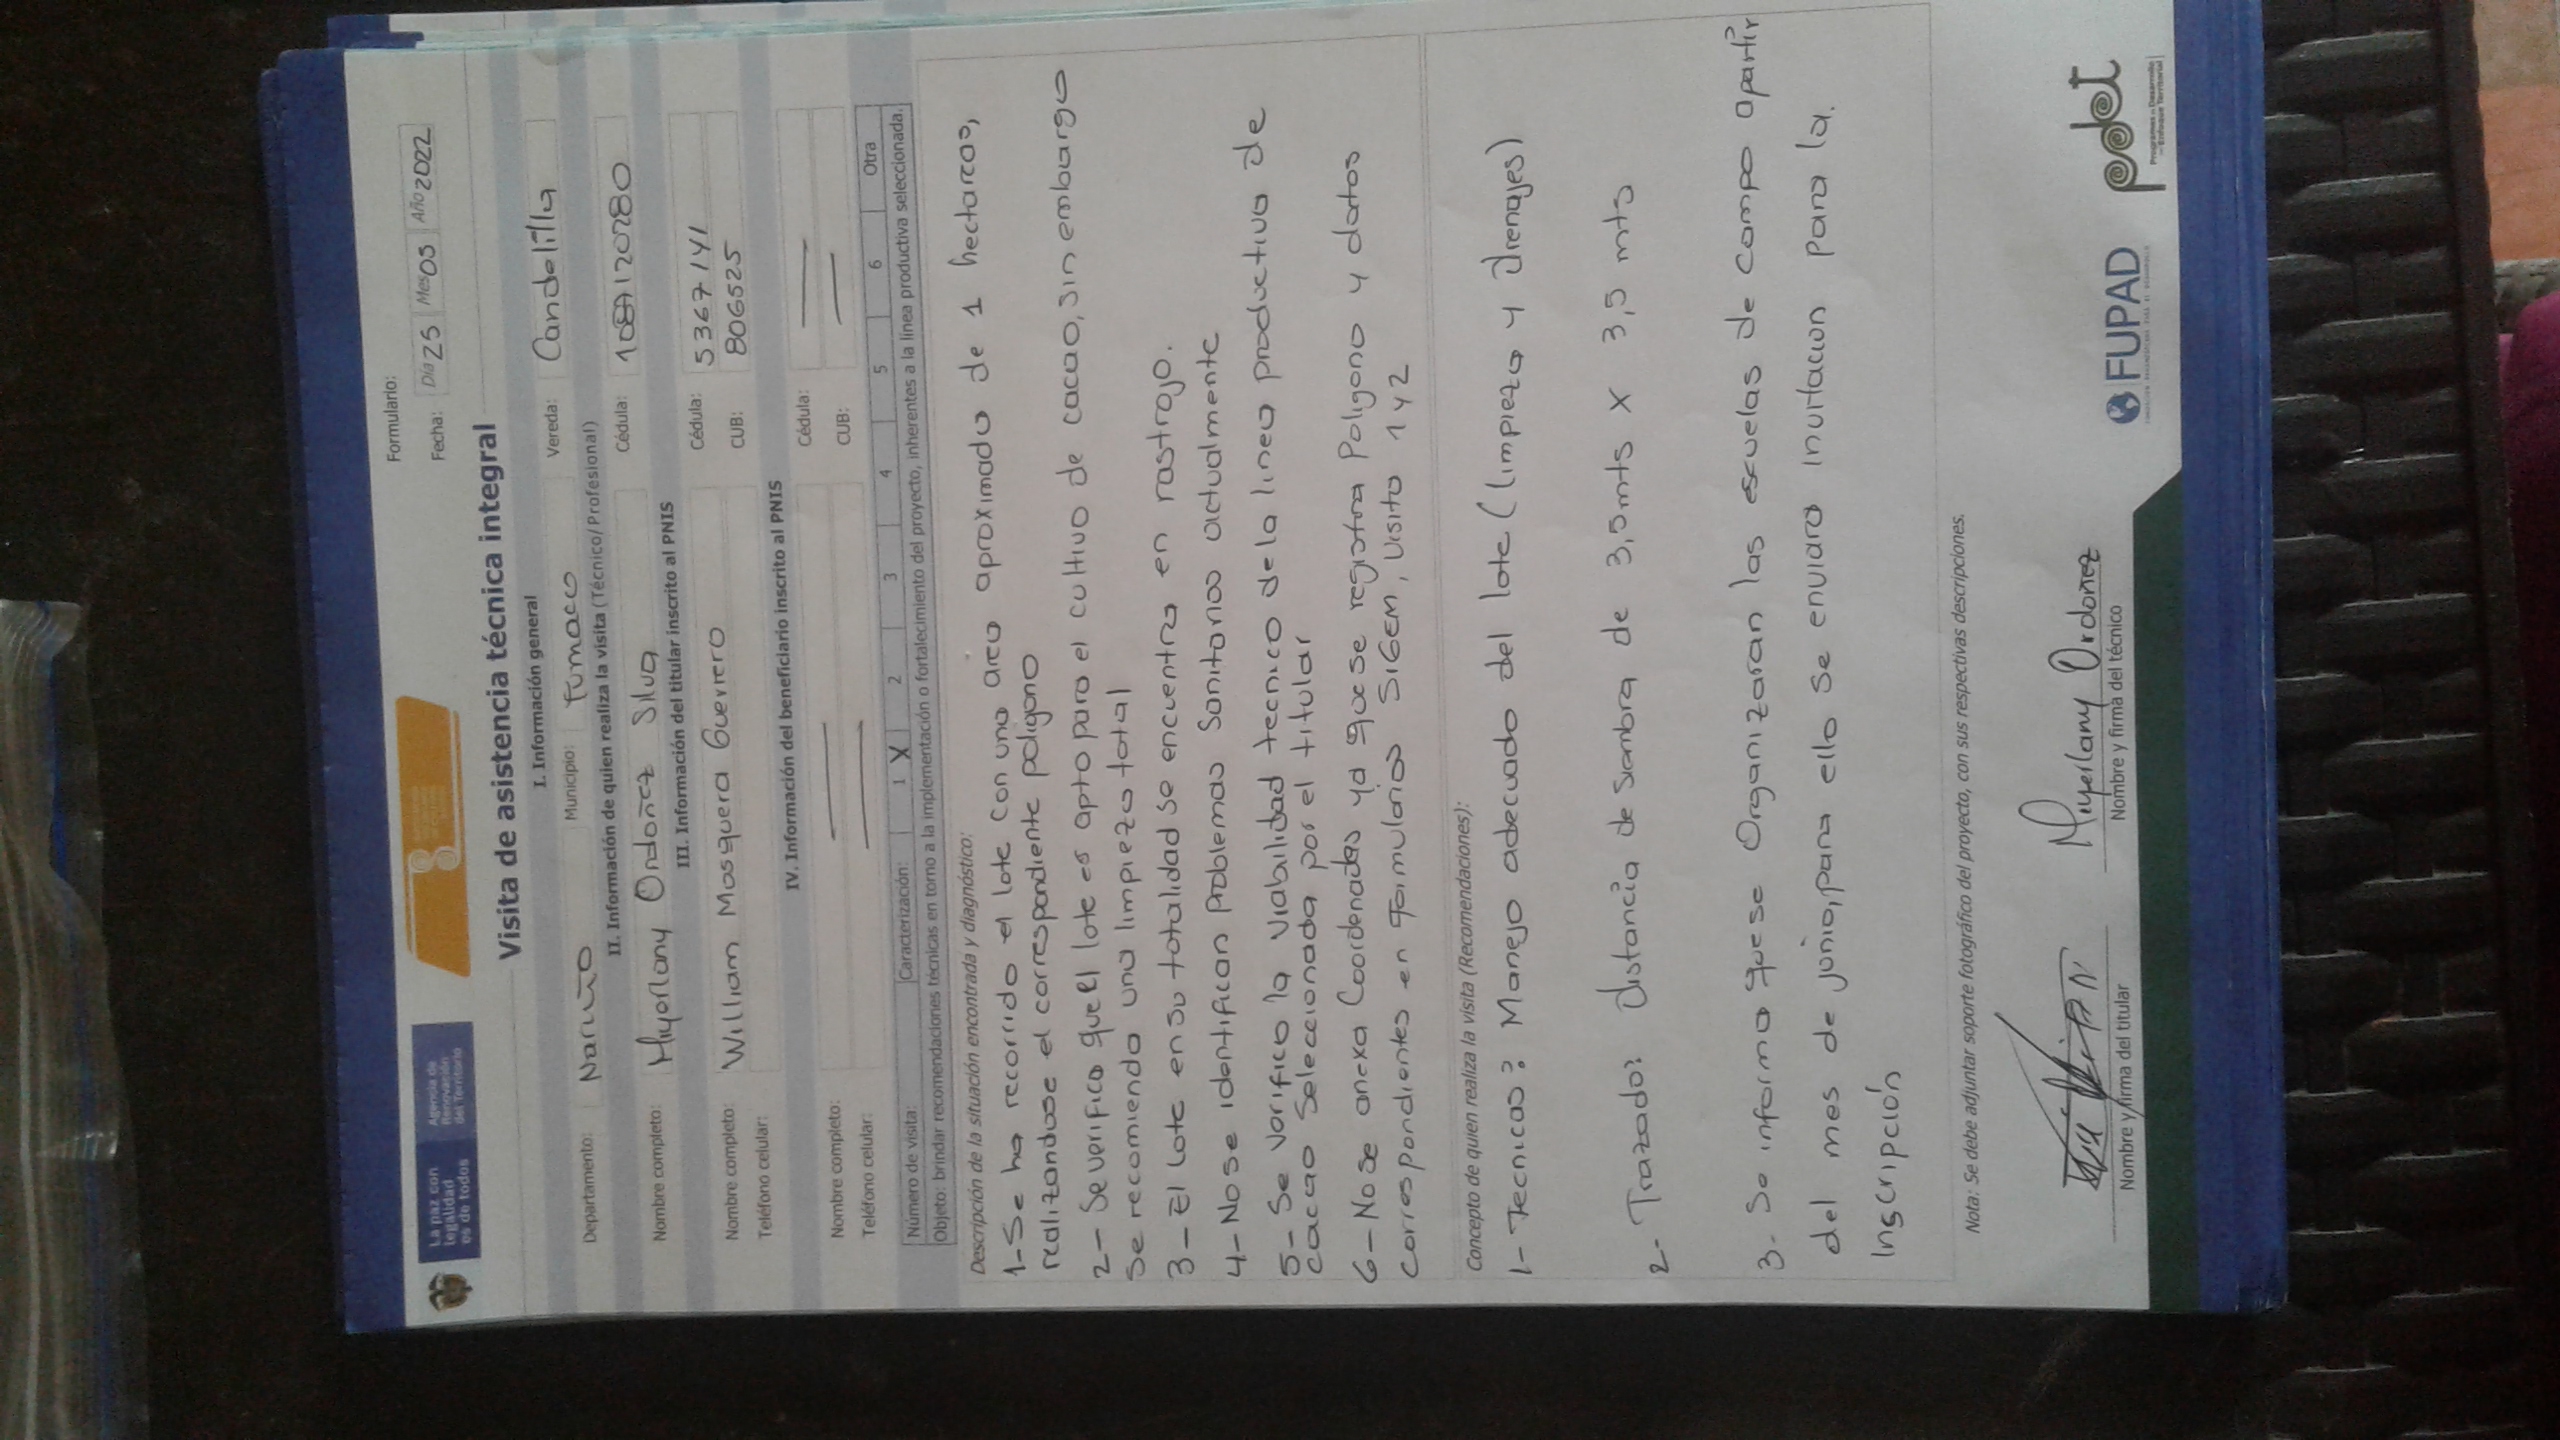 La paz con
legalidad
es de todos
Agencia de
Renovación
del Territorio
Formulario:
Fecha: Día 25 Mes 05 Año 2022
Visita de asistencia técnica integral
I. Información general
Departamento: Nariño Municipio: Tumaco Vereda: Candelilla
II. Información de quien realiza la visita (Técnico/Profesional)
Nombre completo: Miyerlany Ordoñez Silva Cédula: 1087120280
III. Información del titular inscrito al PNIS
Nombre completo: William Mosquera Guerrero Cédula: 5367141
Teléfono celular: CUB: 806525
IV. Información del beneficiario inscrito al PNIS
Nombre completo: Cédula:
Teléfono celular: CUB:
Número de visita: Caracterización: 1 X 2 3 4 5 6 Otra
Objeto: brindar recomendaciones técnicas en torno a la implementación o fortalecimiento del proyecto, inherentes a la línea productiva seleccionada.
Descripción de la situación encontrada y diagnóstico:
1-Se ha recorrido el lote con una area aproximada de 1 hectareas,
realizandose el correspondiente poligono
2- Se verifico que el lote es apto para el cultivo de cacao, sin embargo
se recomienda una limpieza total
3- El lote en su totalidad se encuentra en rastrojo.
4-No se identifican problemas sanitarios actualmente
5- Se verifico la viabilidad tecnico de la linea productiva de
cacao seleccionada por el titular
6-No se anexa coordenadas ya que se registra poligono y datos
correspondientes en formularios SIGEM, visita 1 y 2
Concepto de quien realiza la visita (Recomendaciones):
1- Tecnicas: Manejo adecuado del lote (limpieza y drenajes)
2- Trazado: distancia de siembra de 3,5mts x 3,5 mts
3- Se informa que se Organizaran las escuelas de campo apartir
del mes de junio, para ello se enviara invitacion para la.
Inscripción
Nota: Se debe adjuntar soporte fotográfico del proyecto, con sus respectivas descripciones.
Miyerlany Ordoñez
Nombre y firma del titular Nombre y firma del técnico
FUPAD
pdet
Programas de Desarrollo
con Enfoque Territorial